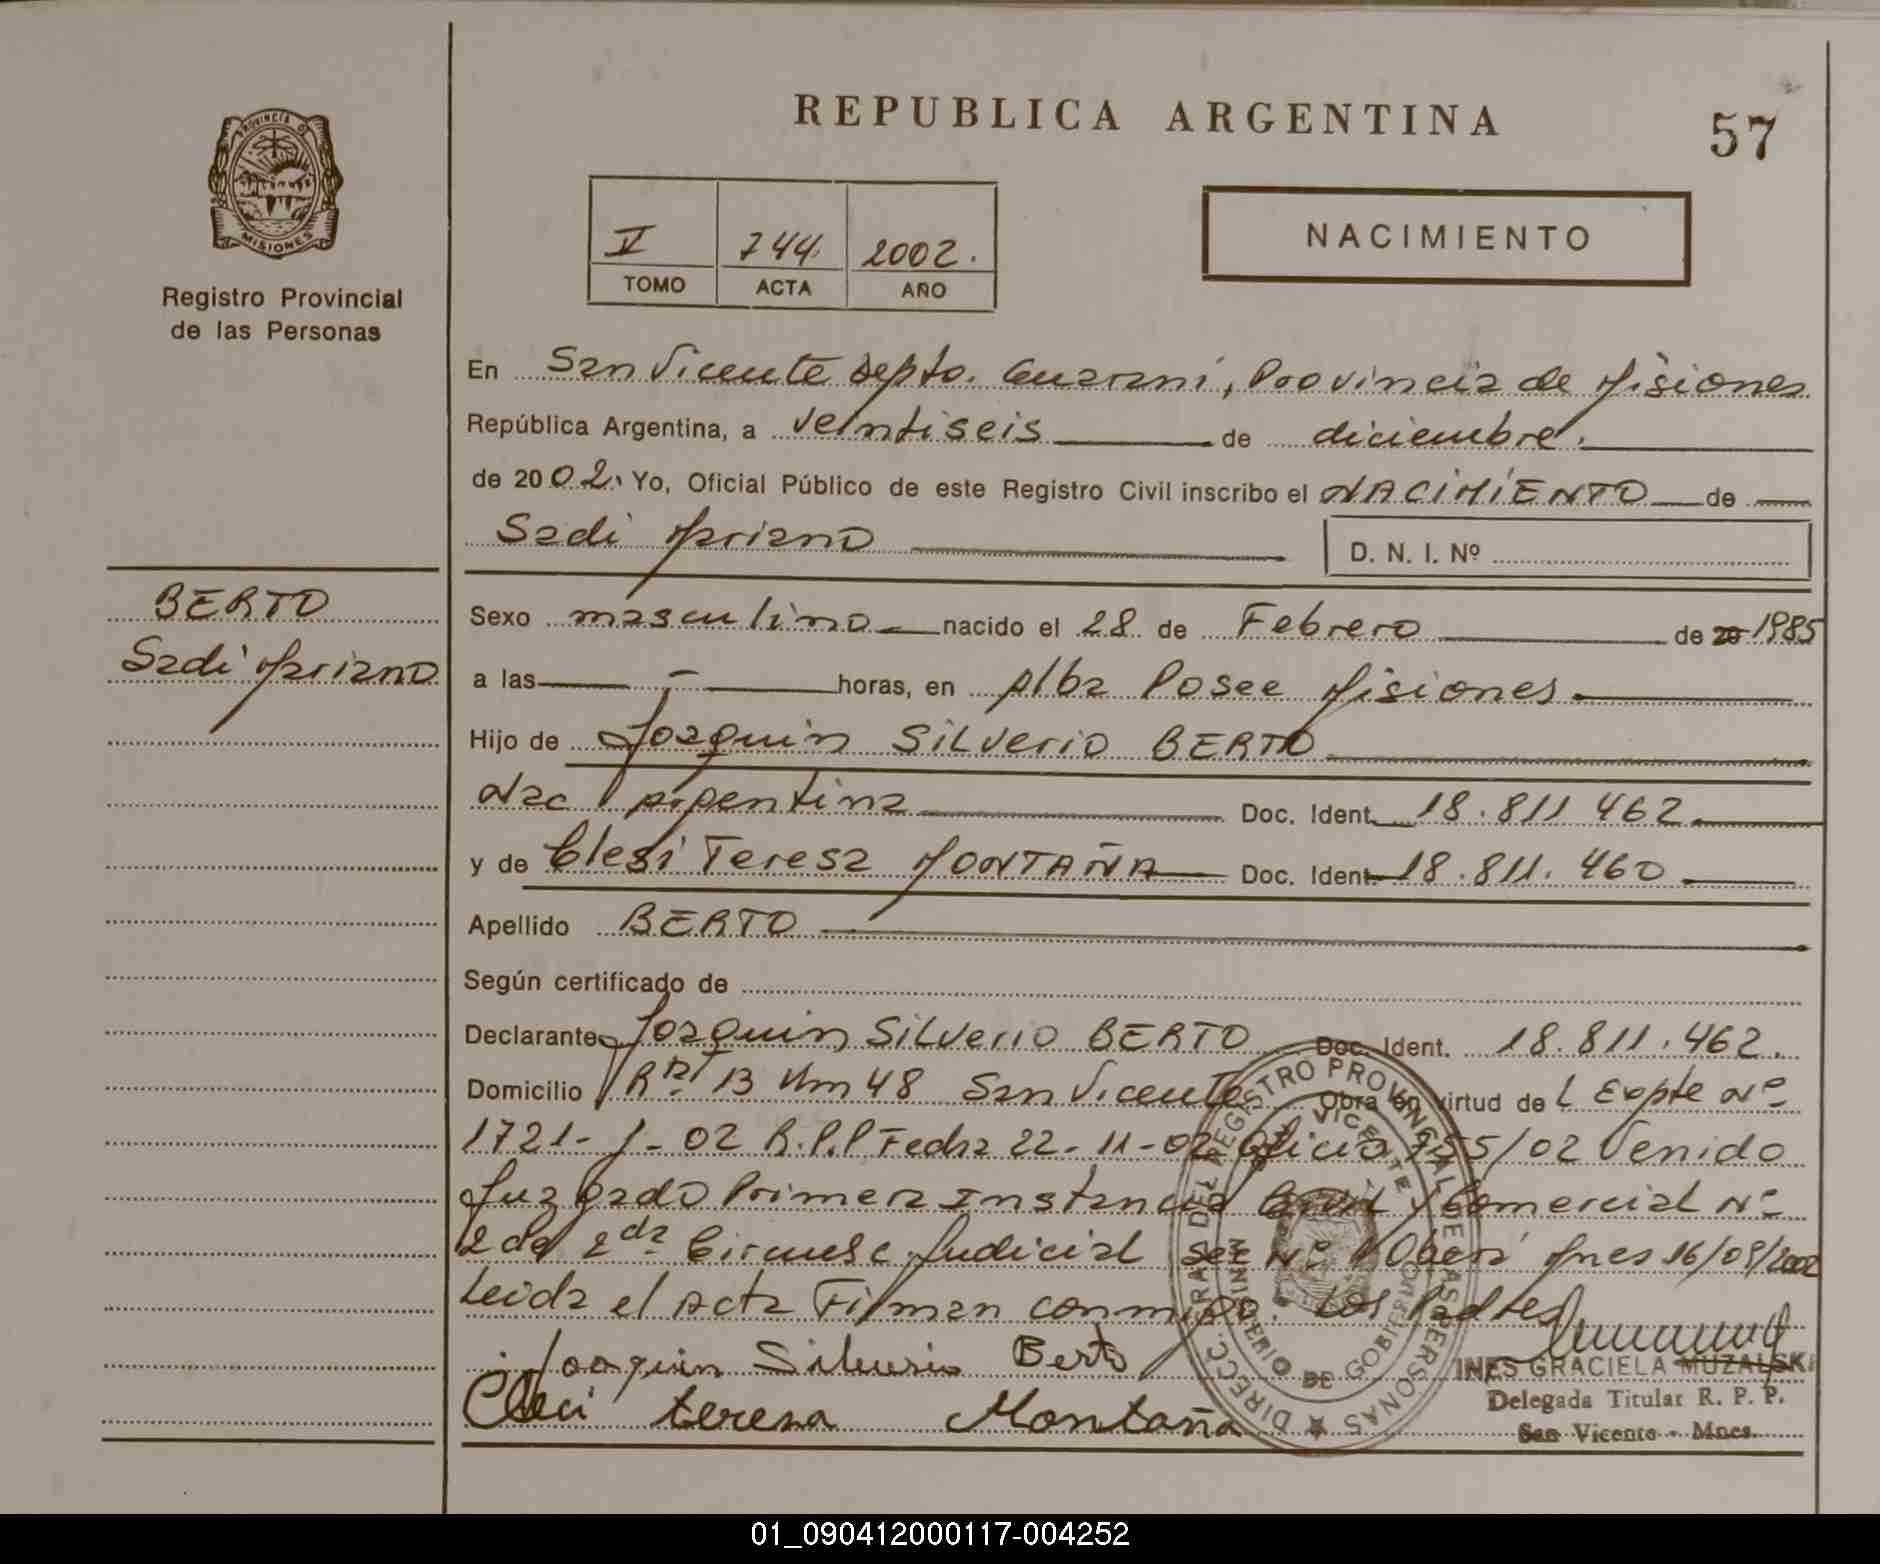 REPUBLICA ARGENTINA
57
PROVINCIA DE
MISIONES
Registro Provincial
de las Personas
V 744. 2002.
TOMO ACTA AÑO
NACIMIENTO
En San Vicente Depto. Guarani, Provincia de Misiones
República Argentina, a veintiseis de diciembre.
de 2002. Yo, Oficial Público de este Registro Civil inscribo el NACIMIENTO de
Sadi Mariano
D. N. I. Nº
BERTO
Sadi Mariano
Sexo masculino nacido el 28 de Febrero de 20 1985
a las - horas, en Alba Posee Misiones
Hijo de Joaquin Silverio BERTO
Nac Argentina Doc. Ident. 18.811 462
y de Clesi Teresa MONTAÑA Doc. Ident. 18.811.460
Apellido BERTO
Según certificado de
Declarante Joaquin Silverio BERTO Doc. Ident. 18.811.462.
Domicilio Rta 13 Km 48 San Vicente Obra en virtud de l Expte Nº
1721-J-02 R.P.P Fecha 22-11-02 Oficio 755/02 Venido
Juzgado Primera Instancia Civil y Comercial Nº
2 de 2da Circunsc. Judicial Sec Nº 1 Oberá Mnes 16/09/2002
Leida el Acta Firman conmigo. Los Padres
Joaquin Silverio Berto
Cleci teresa Montaña
DIRECC. GRAL DEL REGISTRO PROVINCIAL DE LAS PERSONAS
VICENTE
DE GOBIERNO
INES GRACIELA MUZALSKI
Delegada Titular R. P. P.
San Vicente - Mnes.
01_090412000117-004252